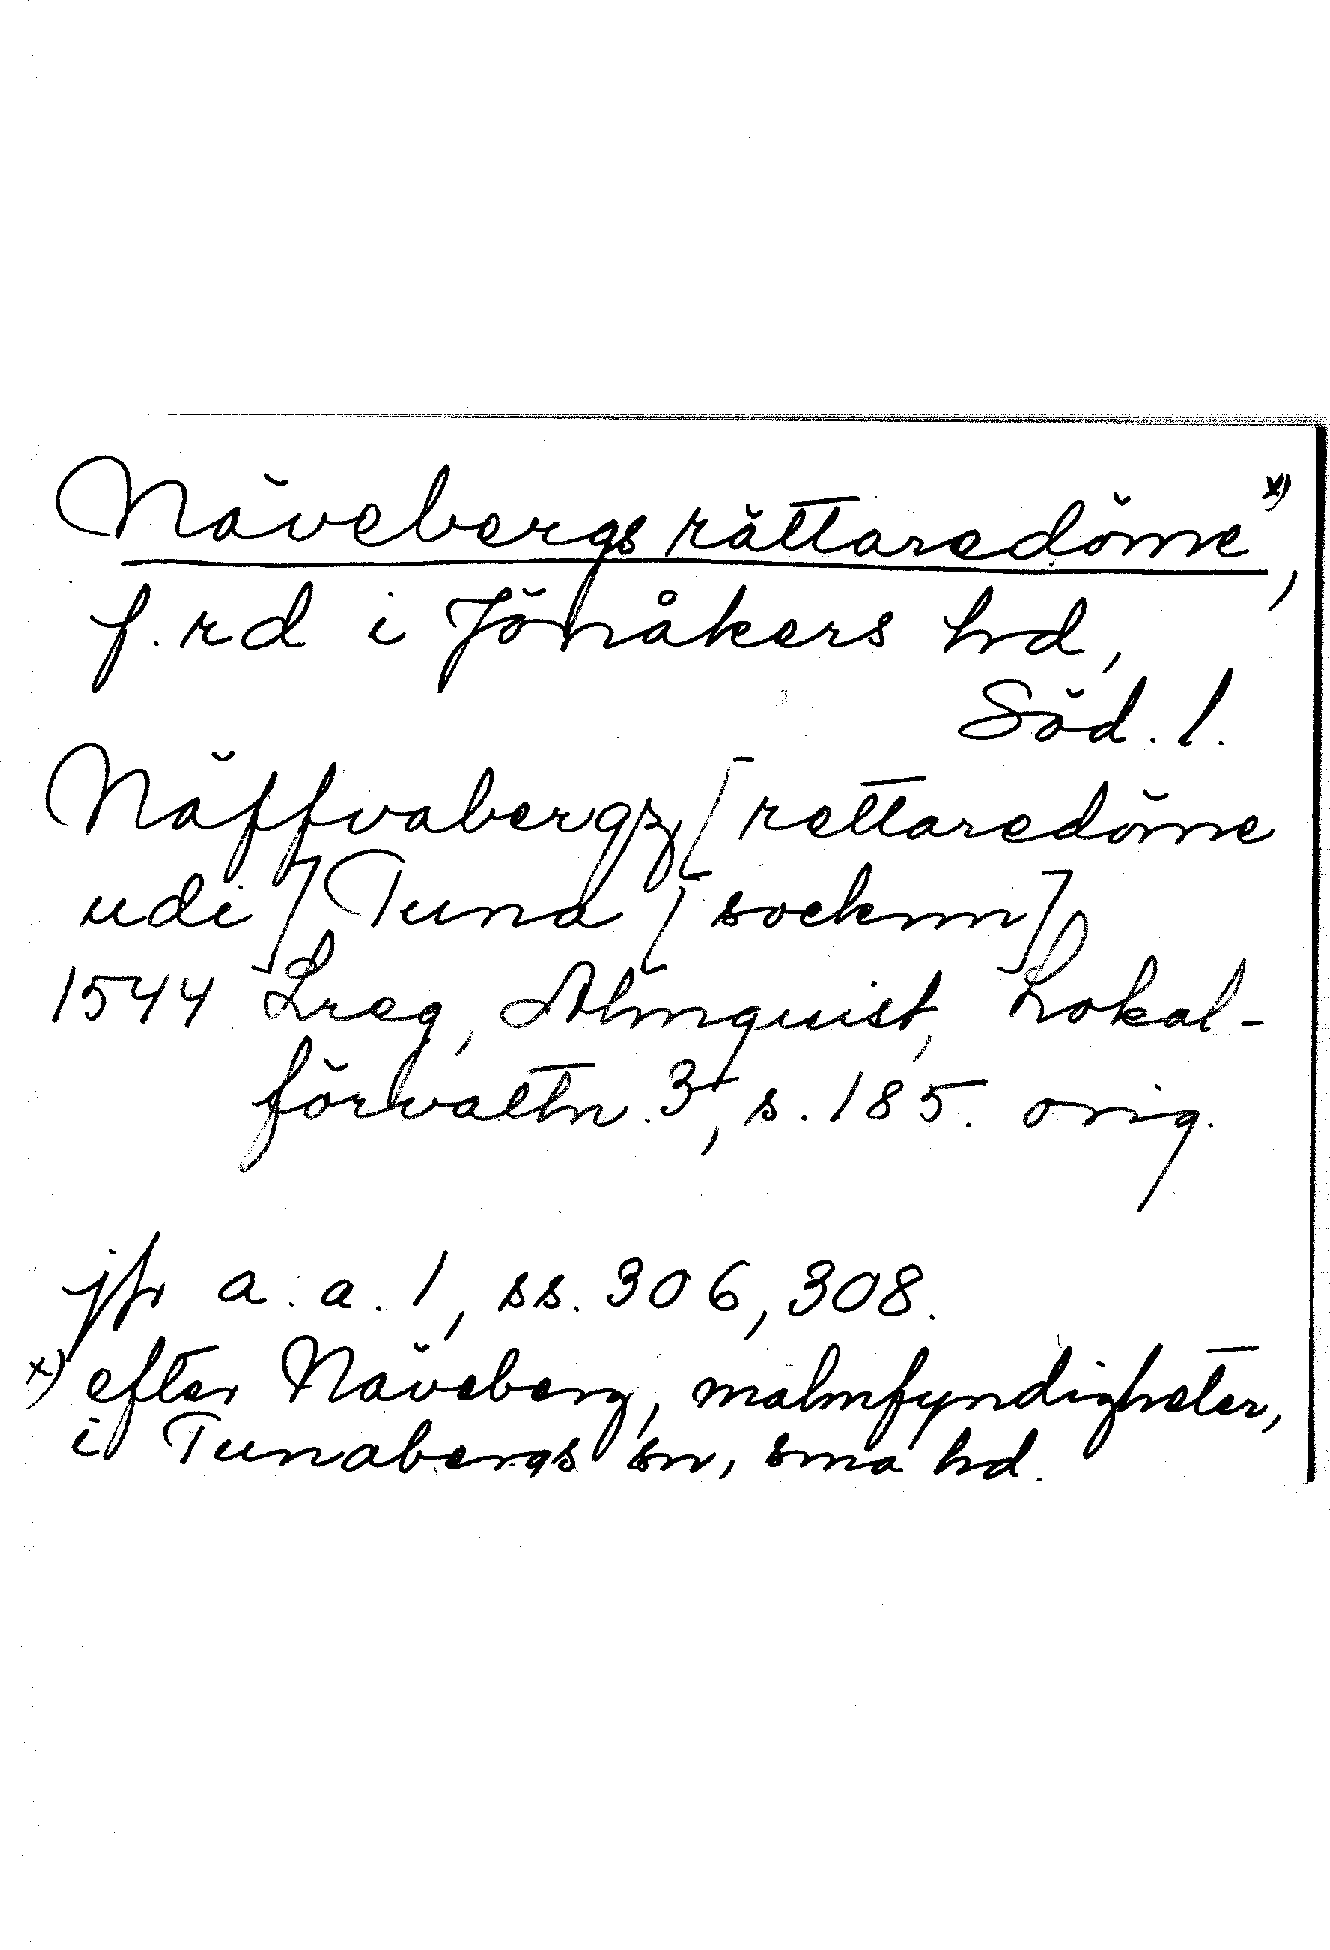 Nävebergs rättaredöme x),
f. rd i Jönåkers hd,
Söd. l.
Näffvabergz [rettaredöme
udi] Tuna [socknn]
1544 Lreg, Almquist, Lokal-
förvaltn. 3, s. 185. orig.
jfr a. a. 1, ss. 306, 308.
x) efter Näveberg, malmfyndigheter,
i Tunabergs sn, sma hd.